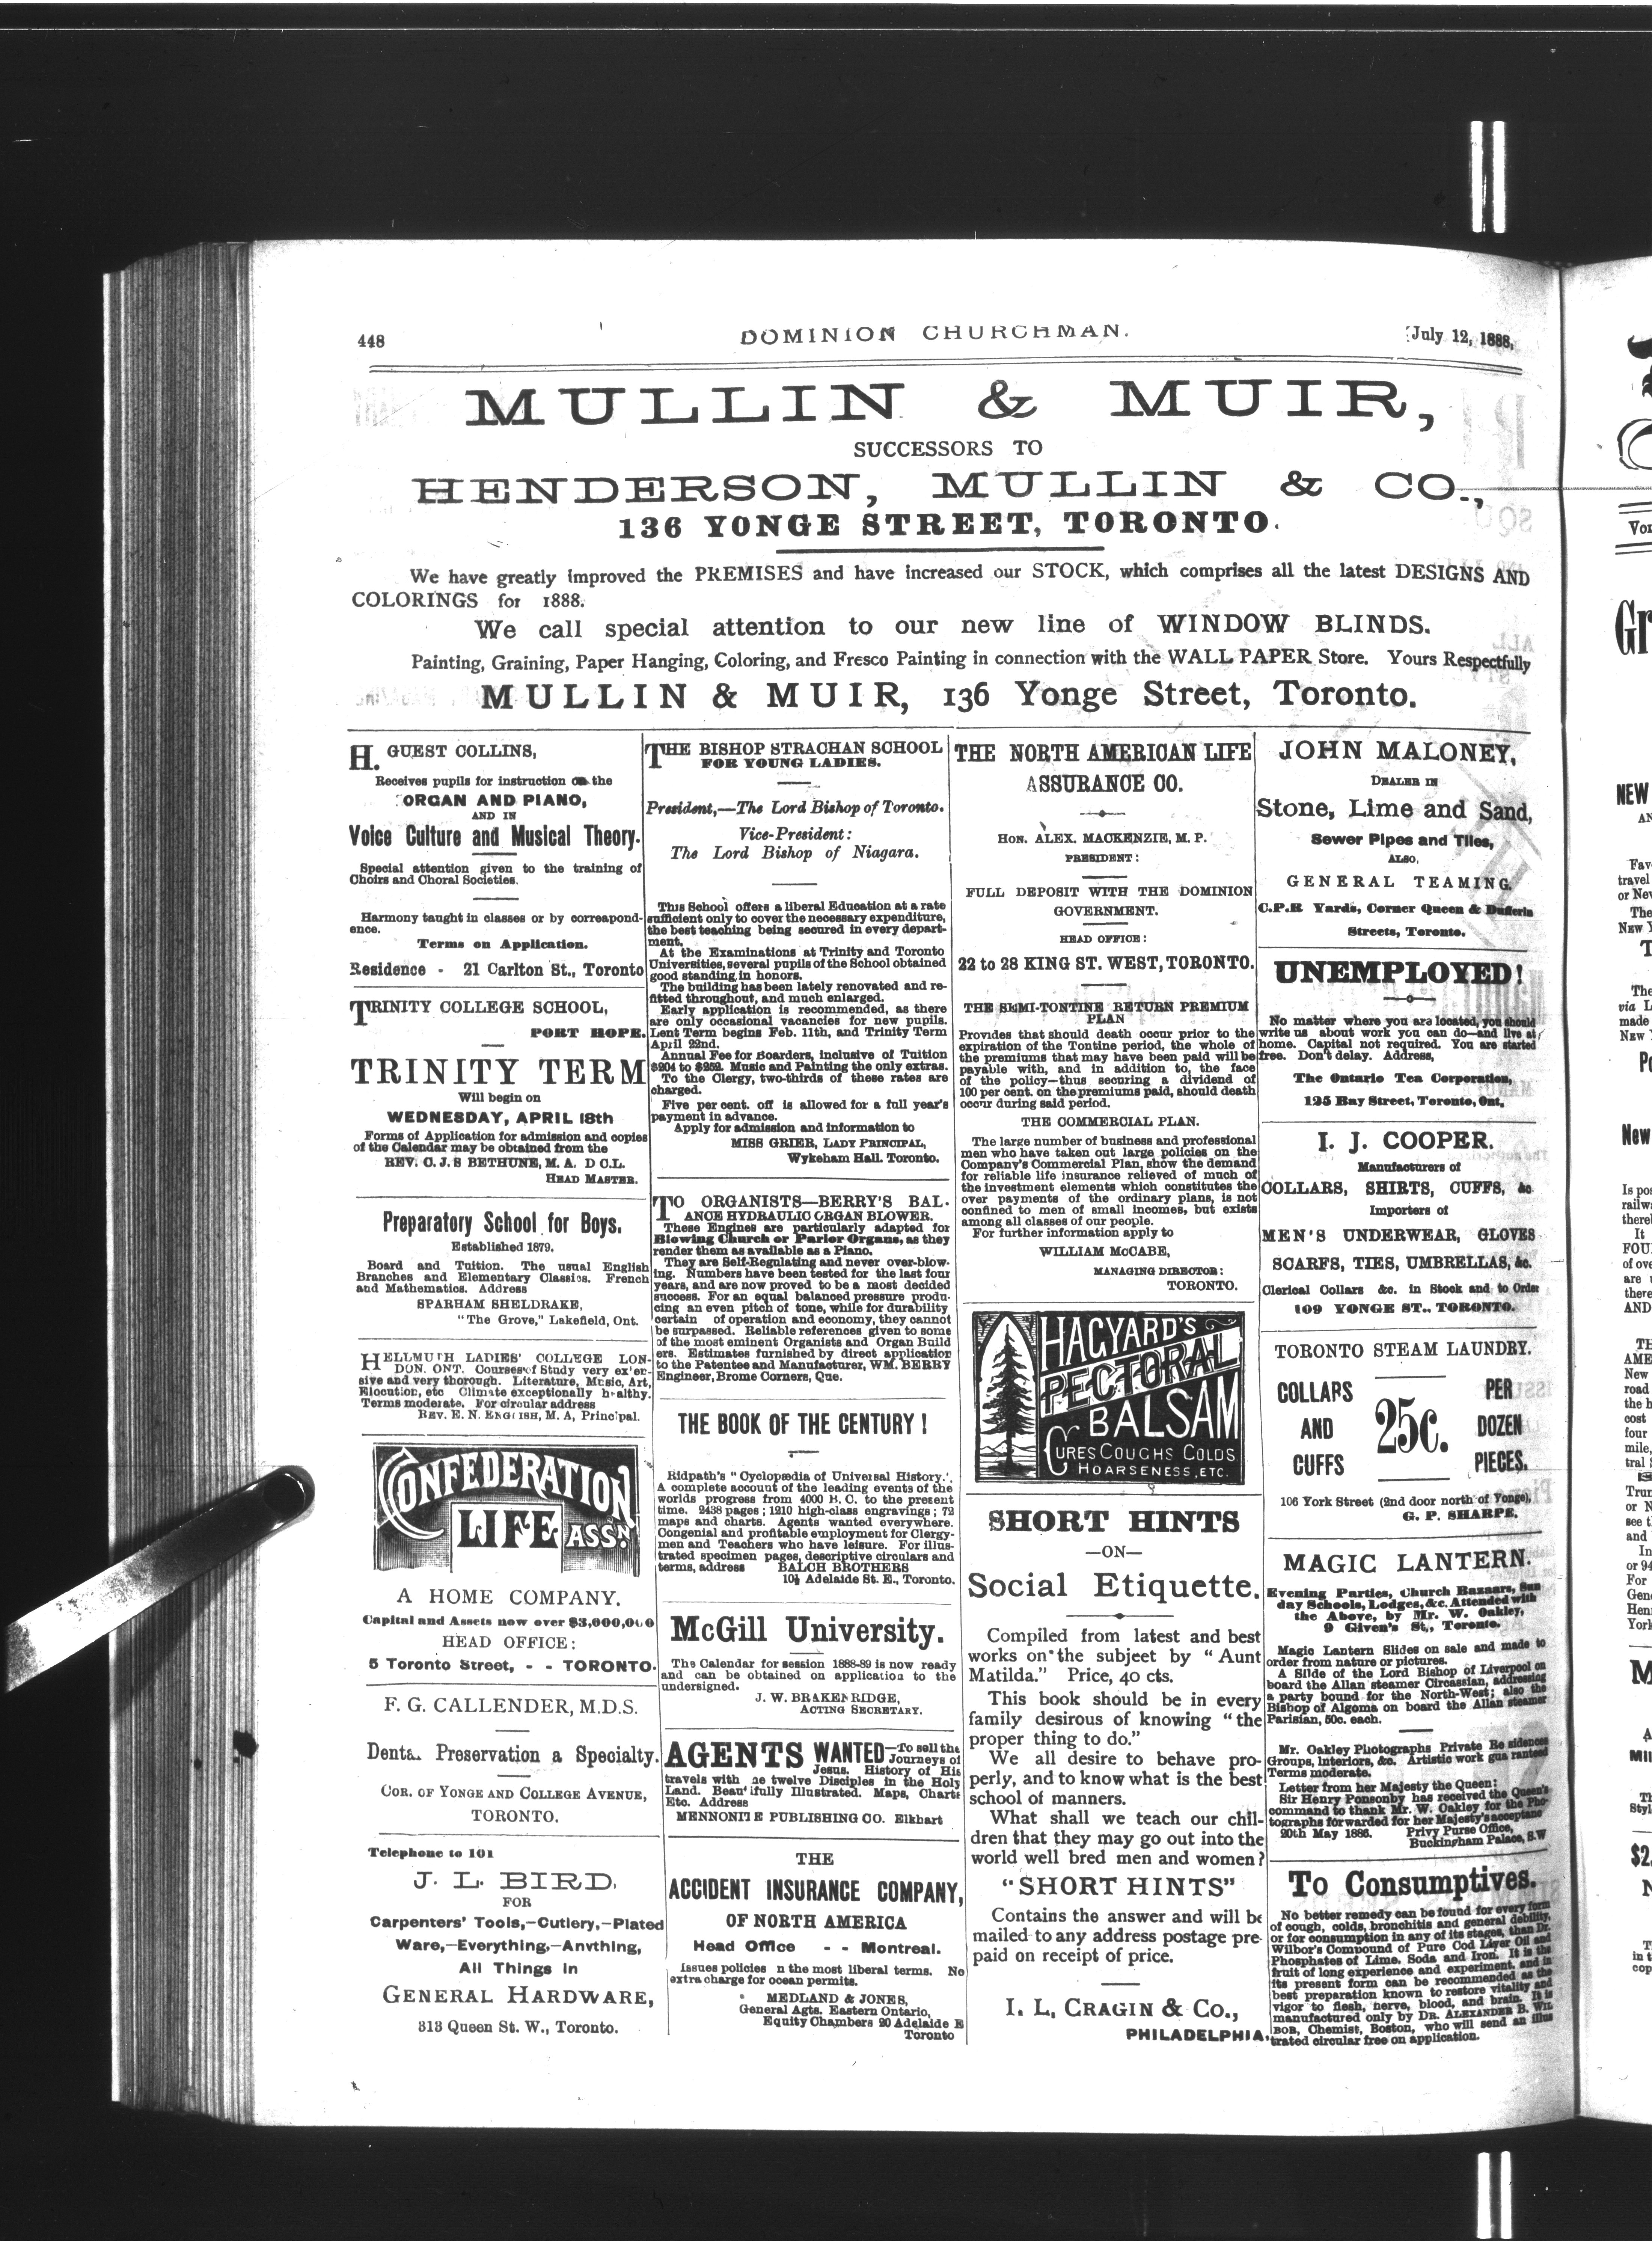 448
DOMINION CHURCHMAN.
July 12, 1888.
MULLIN & MUIR,
SUCCESSORS TO
HENDERSON, MULLIN & CO.,
136 YONGE STREET, TORONTO.
We have greatly improved the PREMISES and have increased our STOCK, which comprises all the latest DESIGNS AND
COLORINGS for 1888.
We call special attention to our new line of WINDOW BLINDS.
Painting, Graining, Paper Hanging, Coloring, and Fresco Painting in connection with the WALL PAPER Store. Yours Respectfully
MULLIN & MUIR, 136 Yonge Street, Toronto.
H. GUEST COLLINS,
Receives pupils for instruction on the
ORGAN AND PIANO,
AND IN
Voice Culture and Musical Theory.
Special attention given to the training of
Choirs and Choral Societies.
Harmony taught in classes or by correspond-
ence.
Terms on Application.
Residence - 21 Carlton St., Toronto
TRINITY COLLEGE SCHOOL,
PORT HOPE.
TRINITY TERM
Will begin on
WEDNESDAY, APRIL 18th
Forms of Application for admission and copies
of the Calendar may be obtained from the
REV. C. J. S BETHUNE, M. A. D C.L.
HEAD MASTER.
Preparatory School for Boys.
Established 1879.
Board and Tuition. The usual English
Branches and Elementary Classics. French
and Mathematics. Address
SPARHAM SHELDRAKE,
"The Grove," Lakefield, Ont.
HELLMUTH LADIES' COLLEGE LON-
DON, ONT. Courses of Study very ex'er-
sive and very thorough. Literature, Music, Art,
Elocution, etc Climate exceptionally healthy.
Terms moderate. For circular address
REV. E. N. ENGLISH, M. A, Principal.
CONFEDERATION
LIFE ASSN.
A HOME COMPANY.
Capital and Assets now over $3,000,000
HEAD OFFICE:
5 Toronto Street, - - TORONTO.
F. G. CALLENDER, M.D.S.
Denta. Preservation a Specialty.
COR. OF YONGE AND COLLEGE AVENUE,
TORONTO.
Telephone to 101
J. L. BIRD,
FOR
Carpenters' Tools,—Cutlery,—Plated
Ware,—Everything,—Anything,
All Things in
GENERAL HARDWARE,
313 Queen St. W., Toronto.
THE BISHOP STRACHAN SCHOOL
FOR YOUNG LADIES.
President,—The Lord Bishop of Toronto.
Vice-President:
The Lord Bishop of Niagara.
This School offers a liberal Education at a rate
sufficient only to cover the necessary expenditure,
the best teaching being secured in every depart-
ment.
At the Examinations at Trinity and Toronto
Universities, several pupils of the School obtained
good standing in honors.
The building has been lately renovated and re-
fitted throughout, and much enlarged.
Early application is recommended, as there
are only occasional vacancies for new pupils.
Lent Term begins Feb. 11th, and Trinity Term
April 22nd.
Annual Fee for Boarders, inclusive of Tuition
$204 to $252. Music and Painting the only extras.
To the Clergy, two-thirds of these rates are
charged.
Five per cent. off is allowed for a full year's
payment in advance.
Apply for admission and information to
MISS GRIER, LADY PRINCIPAL,
Wykeham Hall. Toronto.
TO ORGANISTS—BERRY'S BAL-
ANCE HYDRAULIC ORGAN BLOWER.
These Engines are particularly adapted for
Blowing Church or Parlor Organs, as they
render them as available as a Piano.
They are Self-Regulating and never over-blow-
ing. Numbers have been tested for the last four
years, and are now proved to be a most decided
success. For an equal balanced pressure produ-
cing an even pitch of tone, while for durability
certain of operation and economy, they cannot
be surpassed. Reliable references given to some
of the most eminent Organists and Organ Build
ers. Estimates furnished by direct application
to the Patentee and Manufacturer, WM. BERRY
Engineer, Brome Corners, Que.
THE BOOK OF THE CENTURY!
Ridpath's "Cyclopædia of Universal History."
A complete account of the leading events of the
worlds progress from 4000 B. C. to the present
time. 2438 pages; 1210 high-class engravings; 72
maps and charts. Agents wanted everywhere.
Congenial and profitable employment for Clergy-
men and Teachers who have leisure. For illus-
trated specimen pages, descriptive circulars and
terms, address BALCH BROTHERS
10½ Adelaide St. E., Toronto.
McGill University.
The Calendar for session 1888-89 is now ready
and can be obtained on application to the
undersigned.
J. W. BRAKENRIDGE,
ACTING SECRETARY.
AGENTS WANTED—To sell the
Journeys of
Jesus. History of His
travels with he twelve Disciples in the Holy
Land. Beautifully Illustrated. Maps, Charts
Etc. Address
MENNONITE PUBLISHING CO. Elkhart
THE
ACCIDENT INSURANCE COMPANY,
OF NORTH AMERICA
Head Office - - Montreal.
Issues policies n the most liberal terms. No
extra charge for ocean permits.
MEDLAND & JONES,
General Agts. Eastern Ontario,
Equity Chambers 20 Adelaide E
Toronto
THE NORTH AMERICAN LIFE
ASSURANCE CO.
HON. ALEX. MACKENZIE, M. P.
PRESIDENT:
FULL DEPOSIT WITH THE DOMINION
GOVERNMENT.
HEAD OFFICE:
22 to 28 KING ST. WEST, TORONTO.
THE SEMI-TONTINE RETURN PREMIUM
PLAN
Provides that should death occur prior to the
expiration of the Tontine period, the whole of
the premiums that may have been paid will be
payable with, and in addition to, the face
of the policy—thus securing a dividend of
100 per cent. on the premiums paid, should death
occur during said period.
THE COMMERCIAL PLAN.
The large number of business and professional
men who have taken out large policies on the
Company's Commercial Plan, show the demand
for reliable life insurance relieved of much of
the investment elements which constitutes the
over payments of the ordinary plans, is not
confined to men of small incomes, but exists
among all classes of our people.
For further information apply to
WILLIAM McCABE,
MANAGING DIRECTOR:
TORONTO.
HAGYARD'S
PECTORAL
BALSAM
CURES COUGHS COLDS
HOARSENESS, ETC.
SHORT HINTS
—ON—
Social Etiquette.
Compiled from latest and best
works on the subjeet by "Aunt
Matilda." Price, 40 cts.
This book should be in every
family desirous of knowing "the
proper thing to do."
We all desire to behave pro-
perly, and to know what is the best
school of manners.
What shall we teach our chil-
dren that they may go out into the
world well bred men and women?
"SHORT HINTS"
Contains the answer and will be
mailed to any address postage pre-
paid on receipt of price.
I. L. CRAGIN & CO.,
PHILADELPHIA.
JOHN MALONEY,
DEALER IN
Stone, Lime and Sand,
Sewer Pipes and Tiles,
ALSO,
GENERAL TEAMING.
C.P.R Yards, Corner Queen & Dufferin
Streets, Toronto.
UNEMPLOYED!
No matter where you are located, you should
write us about work you can do—and live at
home. Capital not required. You are started
free. Don't delay. Address,
The Ontario Tea Corporation,
125 Bay Street, Toronto, Ont,
I. J. COOPER.
Manufacturers of
COLLARS, SHIRTS, CUFFS, &c
Importers of
MEN'S UNDERWEAR, GLOVES
SCARFS, TIES, UMBRELLAS, &c.
Clerical Collars &c. in Stock and to Order
109 YONGE ST., TORONTO.
TORONTO STEAM LAUNDRY.
COLLARS
AND
CUFFS
25c.
PER
DOZEN
PIECES.
106 York Street (2nd door north of Yonge),
G. P. SHARPE.
MAGIC LANTERN.
Evening Parties, Church Bazaars, Sun
day Schools, Lodges, &c. Attended with
the Above, by Mr. W. Oakley,
9 Given's St., Toronto.
Magic Lantern Slides on sale and made to
order from nature or pictures.
A Slide of the Lord Bishop of Liverpool on
board the Allan steamer Circassian, addressing
a party bound for the North-West; also the
Bishop of Algoma on board the Allan steamer
Parisian, 50c. each.
Mr. Oakley Photographs Private Residences
Groups, Interiors, &c. Artistic work guaranteed
Terms moderate.
Letter from her Majesty the Queen:
Sir Henry Ponsonby has received the Queen's
command to thank Mr. W. Oakley for the Pho-
tographs forwarded for her Majesty's acceptanc
20th May 1886. Privy Purse Office,
Buckingham Palace, S.W
To Consumptives.
No better remedy can be found for every form
of cough, colds, bronchitis and general debility,
or for consumption in any of its stages, than Dr.
Wilbor's Compound of Pure Cod Liver Oil and
Phosphates of Lime, Soda and Iron. It is the
fruit of long experience and experiment, and in
its present form can be recommended as the
best preparation known to restore vitality and
vigor to flesh, nerve, blood, and brain. It is
manufactured only by DR. ALEXANDER B. WIL
BOR, Chemist, Boston, who will send an illus
trated circular free on application.